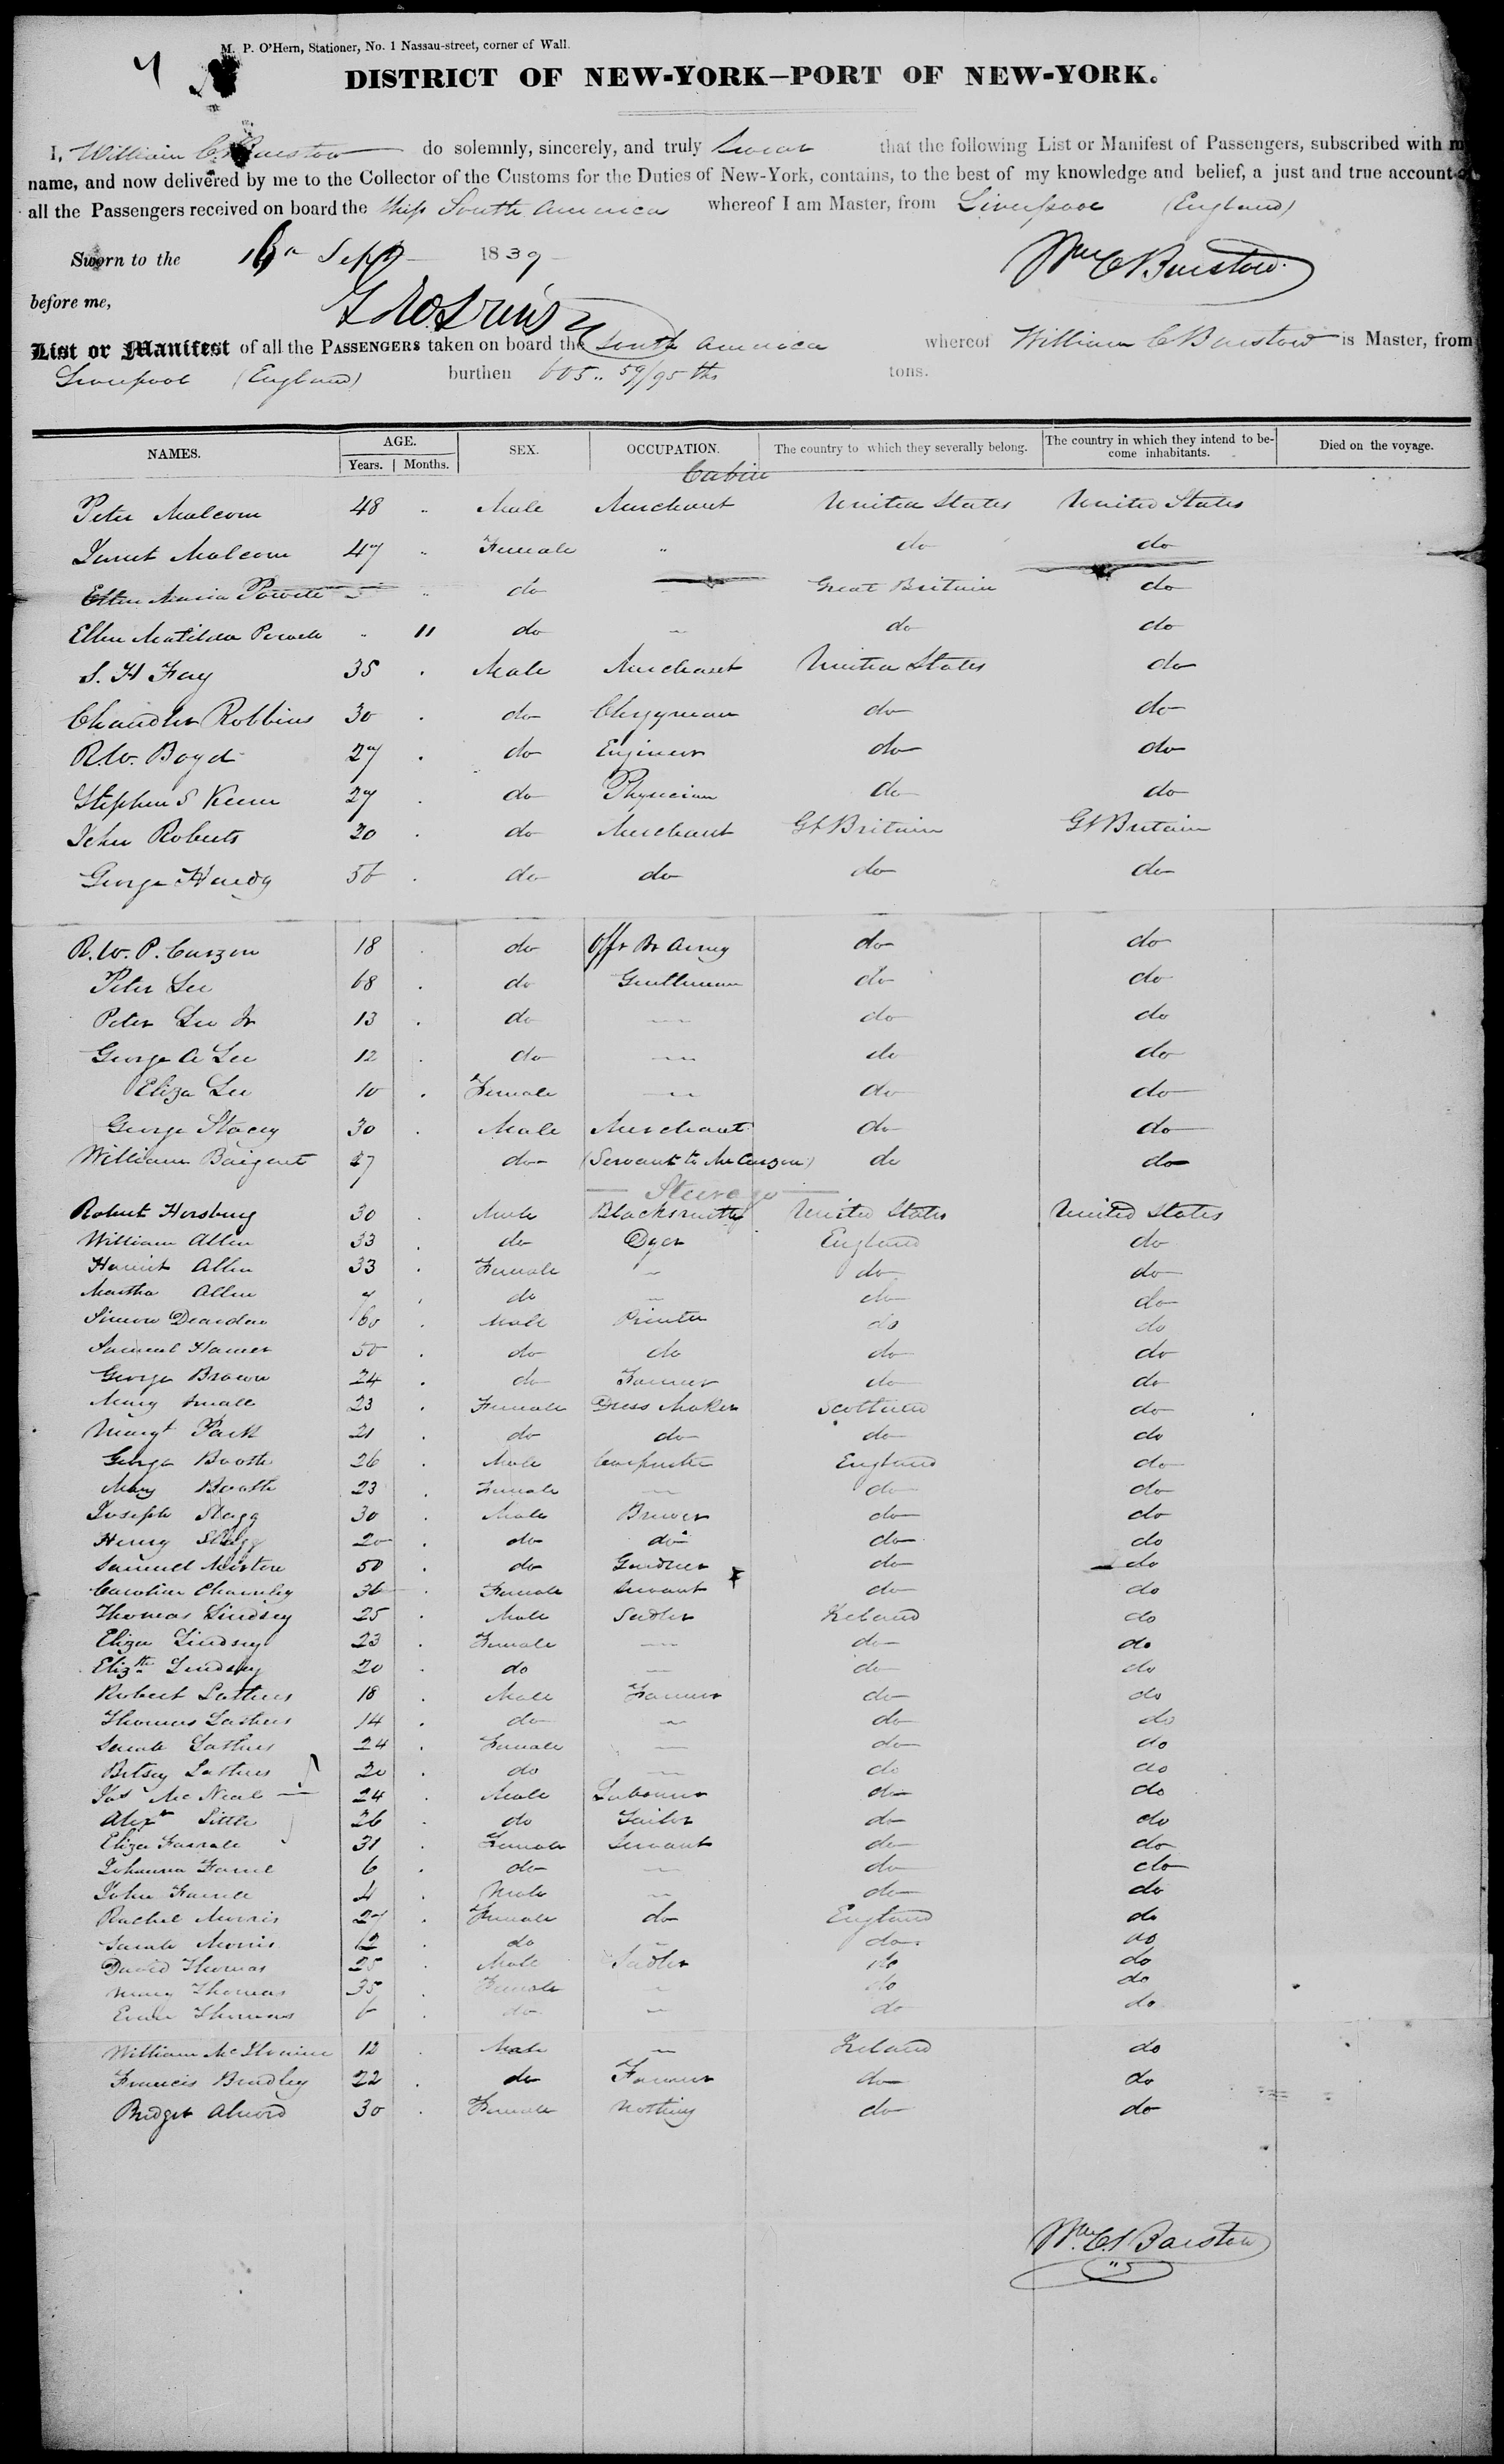 M. P. O'Hern, Stationer, No. 1 Nassau-street, corner of Wall.
DISTRICT OF NEW-YORK—PORT OF NEW-YORK.
I, William C. Barstow do solemnly, sincerely, and truly Swear that the following List or Manifest of Passengers, subscribed with m
name, and now delivered by me to the Collector of the Customs for the Duties of New-York, contains, to the best of my knowledge and belief, a just and true account
all the Passengers received on board the Ship South America whereof I am Master, from Liverpool (England)
Sworn to the Sept 1839 Wm C Barstow
before me,
List or Manifest of all the PASSENGERS taken on board the South America whereof William C Barstow is Master, from
Liverpool (England) burthen 605.. 59/95 ths tons.
NAMES. AGE. Years. Months. SEX. OCCUPATION. The country to which they severally belong. The country in which they intend to become inhabitants. Died on the voyage.
Cabin
Peter Malcom 48 " Male Merchant United States United States
Janet Malcom 47 " Female " do do
Ellen Maria Powell " do Great Britain do
Ellen Matilda Powell " 11 do do do
S. H Fay 35 Male Merchant United States do
Chandler Robbins 30 do Clergyman do do
R.W. Boyd 27 do Engineer do do
Stephen S Keene 27 do Physician do do
John Roberts 20 do Merchant Gt Britain Gt Britain
George Hardy 56 do do do do
R. W. P. Curzon 18 do Offr Br Army do do
Peter Lee 68 do Gentleman do do
Peter Lee Jr 13 do do do
George A Lee 12 do do do
Eliza Lee 10 Female do do
George Stacey 30 Male Merchant do do
William Baigent 27 do (Servant to Mr Curzon) do do
Steerage
Robert Horsburg 30 Male Blacksmith United States United States
William Allen 33 do Dyer England do
Harriet Allen 33 Female do do
Martha Allen 7 do do do
Simeon Dearden 60 Male Printer do do
Samuel Hamer 50 do do do do
George Brown 24 do Farmer do do
Mary Small 23 Female Dress Maker Scotland do
Margt Park 21 do do do do
George Booth 26 Male Carpenter England do
Mary Booth 23 Female do do
Joseph Stagg 30 Male Brewer do do
Henry Stagg 20 do do do do
Samuel 50 do Gardner do do
Caroline 36 Female Servant do do
Thomas Lindsey 25 Male Sadler Ireland do
Eliza Lindsey 23 Female do do
Elizth Lindsey 20 do do do
Robert Lathers 18 Male Farmer do do
Thomas Lathers 14 do do do
Sarah Lathers 24 Female do do
Betsey Lathers 20 do do do
Jas McNeal 24 Male Labourer do do
Alexr Little 26 do Tailor do do
Eliza Farrale 31 Female Servant do do
Johanna 6 do do do
John 4 Male do do
Rachel Morris 27 Female do England do
Sarah Morris 12 do do do
David Thomas 25 Male Sadler do do
Mary Thomas 35 Female do do
Thomas 6 do do do
William 12 Male Ireland do
Francis Bradley 22 do Farmer do do
Bridget Alword 30 Female Nothing do do
Wm C. Barstow